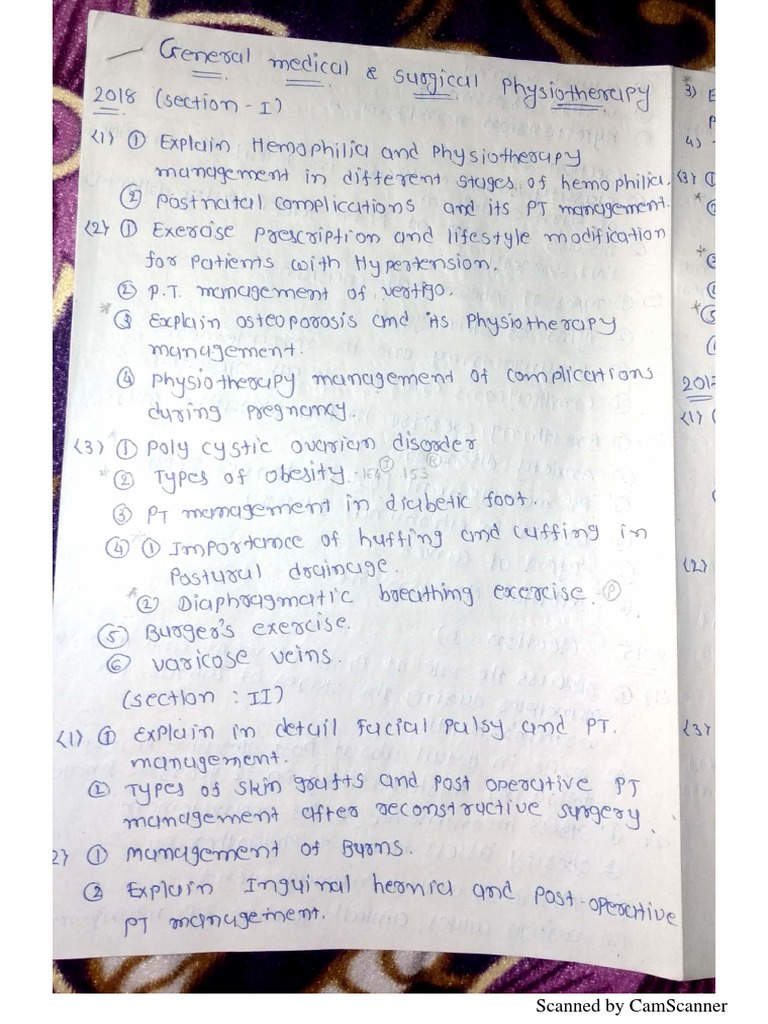 General medical & surgical Physiotherapy
2018 (section - I)
(1) ① Explain Hemophilia and Physiotherapy
management in different stages of hemophilia.
② Postnatal complications and its PT management.
(2) ① Exercise prescription and lifestyle modification
for patients with Hypertension.
② P.T. management of vertigo.
* ③ Explain osteoporosis and its Physiotherapy
management.
④ Physiotherapy management of complications
during pregnancy.
(3) ① Poly cystic ovarian disorder
* ② Types of obesity. 153
③ PT management in diabetic foot.
④ ① Importance of huffing and cuffing in
Postural drainage.
* ② Diaphragmatic breathing exercise. Ⓟ
⑤ Burger's exercise.
⑥ varicose veins.
(section : II)
(1) ① Explain in detail Facial Palsy and PT.
management.
② Types of skin grafts and post operative PT
management after reconstructive surgery.
2) ① management of Burns.
② Explain Inguinal hernia and post-operative
PT management.
3) E
P
4)
(3) ①
*
*
*
⑤
201
(1)
(2)
(3)
Scanned by CamScanner